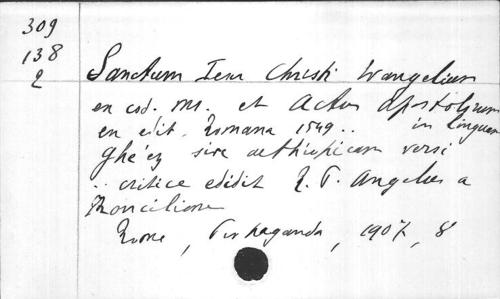 309
138
2
Sanctum Iesu Christi Evangelium
ex cod. ms. et Actus Apostolorum
ex edit. Romana 1549.. in linguam
ghe'ez sive aethiopicam versi
.. critice edidit R. P. Angelus a
Ronciglione
Rome, Propaganda, 1907, 8